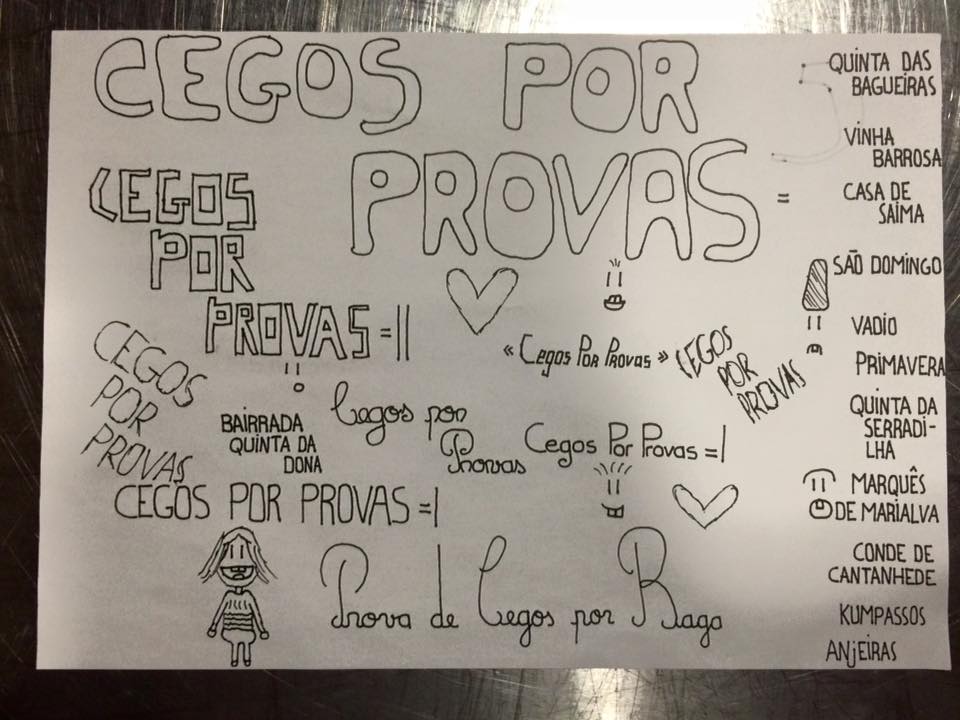 CEGOS POR
PROVAS
CEGOS
POR
PROVAS =||
« Cegos Por Provas »
CEGOS
POR
PROVAS
CEGOS
POR
PROVAS
BAIRRADA
QUINTA DA
DONA
Cegos por
Provas
Cegos Por Provas =|
CEGOS POR PROVAS =|
Prova de Cegos por Baga
5
=
QUINTA DAS
BAGUEIRAS
VINHA
BARROSA
CASA DE
SAIMA
SÃO DOMINGO
VADIO
PRIMAVERA
QUINTA DA
SERRADI-
LHA
MARQUÊS
DE MARIALVA
CONDE DE
CANTANHEDE
KUMPASSOS
ANJEIRAS